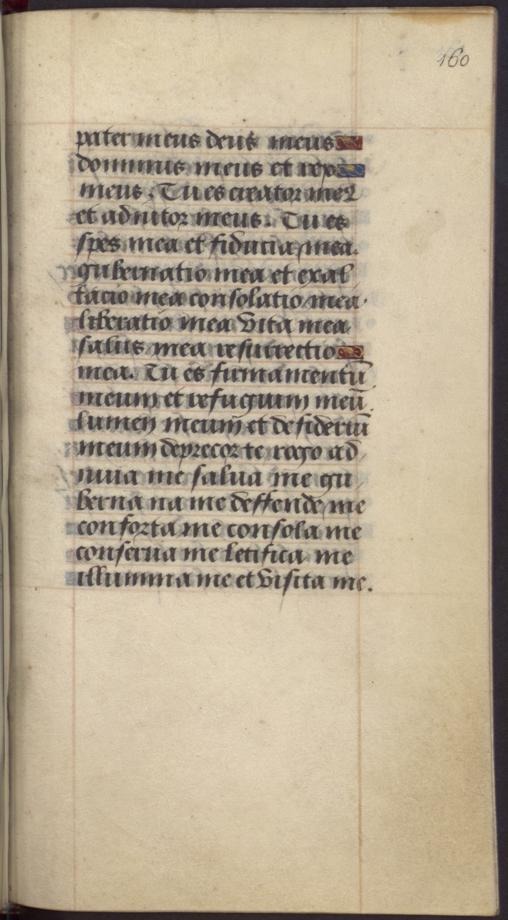 160
pater meus deus meus
dominus meus et rex
meus. Tu es creator meꝰ
et aditor meus. Tu es
spes mea et fiducia mea.
gubernatio mea et exal
tacio mea consolatio mea.
liberatio mea vita mea
salus mea resurrectio
mea. Tu es firmamentū
meum et refugium meū
lumen meum et desideriū
meum deprecor te rogo ad
iuua me salua me gu
berna na me deffende me
conforta me consola me
conserua me letifica me
illumina me et visita me.